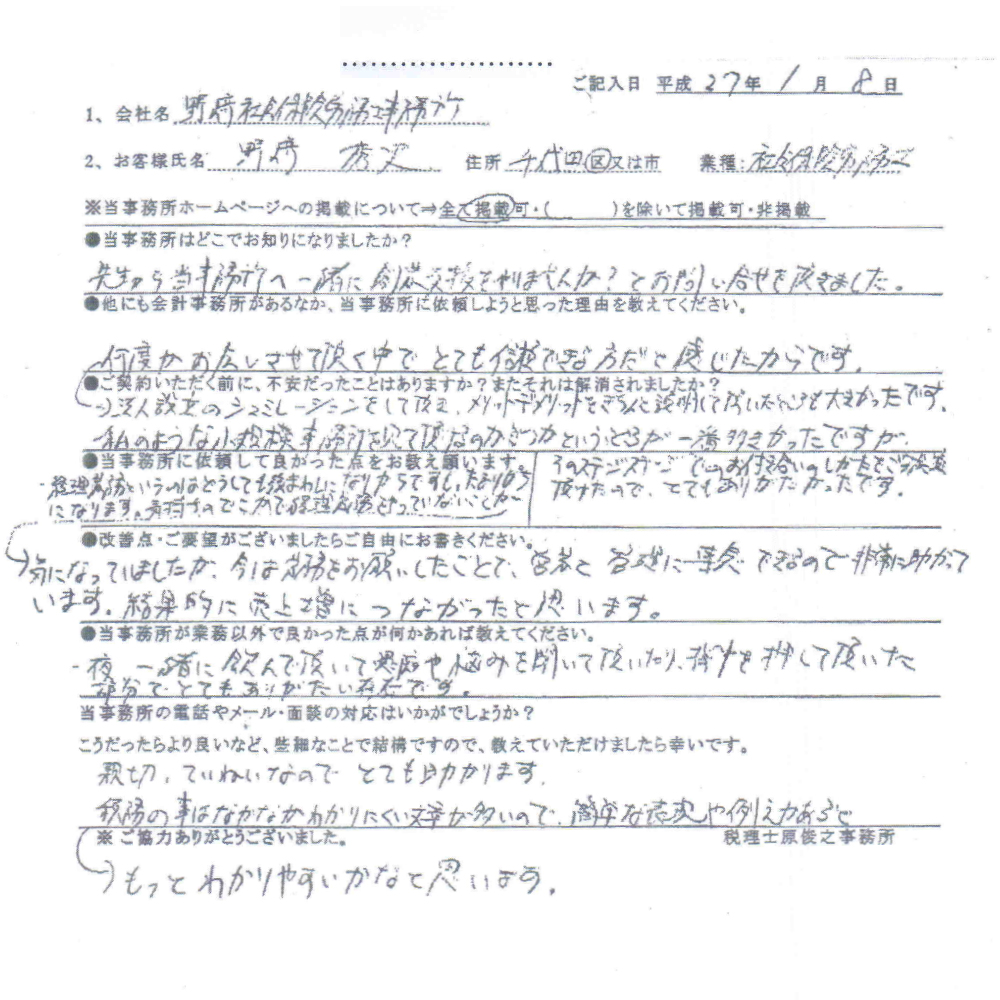 ご記入日 平成 27年 1月 8日
1、会社名 野崎社会保険労務士事務所
2、お客様氏名 野崎 住所 千代田区又は市 業種: 社会保険労務士
※当事務所ホームページへの掲載について⇒全て掲載可・( )を除いて掲載可・非掲載
●当事務所はどこでお知りになりましたか?
先生から当事務所へ一緒に創業支援をやりませんか?とお問い合せを頂きました。
●他にも会計事務所があるなか、当事務所に依頼しようと思った理由を教えてください。
何度かお会いさせて頂く中でとても信頼できる方だと感じたからです。
●ご契約いただく前に、不安だったことはありますか?またそれは解消されましたか?
法人設立のシュミレーションをして頂き、メリットデメリットをきちんと説明して頂いたところも大きかったです。
私のような小規模事務所を見て頂けるのかどうかというところが一番大きかったですが、
そのステージステージでのお付き合いのしかたをご提案
頂けたので、とてもありがたかったです。
●当事務所に依頼して良かった点をお教え願います。
・経理業務というのはどうしても後まわしになりがちですし、
になります。
●改善点・ご要望がございましたらご自由にお書きください。
気になっていましたが、今は業務をお願いしたことで、営業と管理に専念できるので非常に助かって
います。結果的に売上増につながったと思います。
●当事務所が業務以外で良かった点が何かあれば教えてください。
・夜、一緒に飲んで頂いて愚痴や悩みを聞いて頂いたり、背中を押して頂いた
部分でとてもありがたい存在です。
当事務所の電話やメール・面談の対応はいかがでしょうか?
こうだったらより良いなど、些細なことで結構ですので、教えていただけましたら幸いです。
親切、ていねいなのでとても助かります。
税務の事はなかなかわかりにくい文章が多いので、簡単な表現や例えがあると
※ ご協力ありがとうございました。 税理士原俊之事務所
もっとわかりやすいかなと思います。